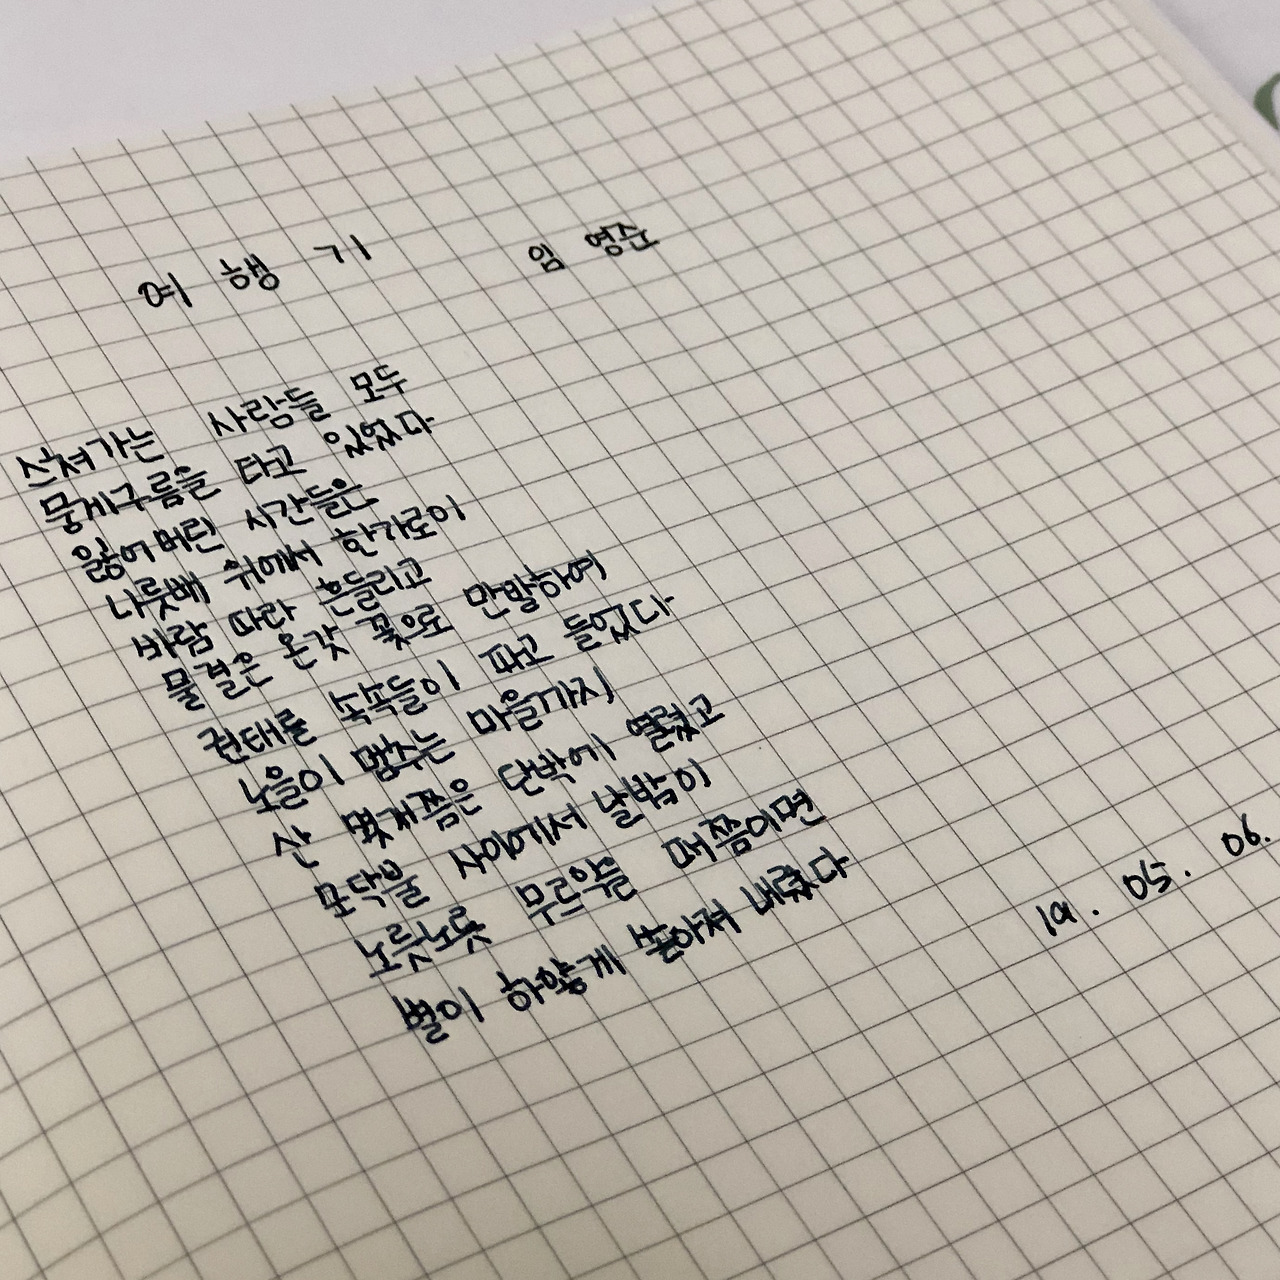 여행기 임영준
스쳐가는 사람들 모두
뭉게구름을 타고 있었다
잃어버린 시간들은
나룻배 위에서 한가로이
바람 따라 흔들리고
물결은 온갖 꽃으로 만발하여
권태를 속속들이 파고 들었다
노을이 멈추는 마을까지
산 몇개쯤은 단박에 열렸고
모닥불 사이에서 날밤이
노릇노릇 무르익을 때쯤이면
별이 하얗게 쏟아져 내렸다
19. 05. 06.